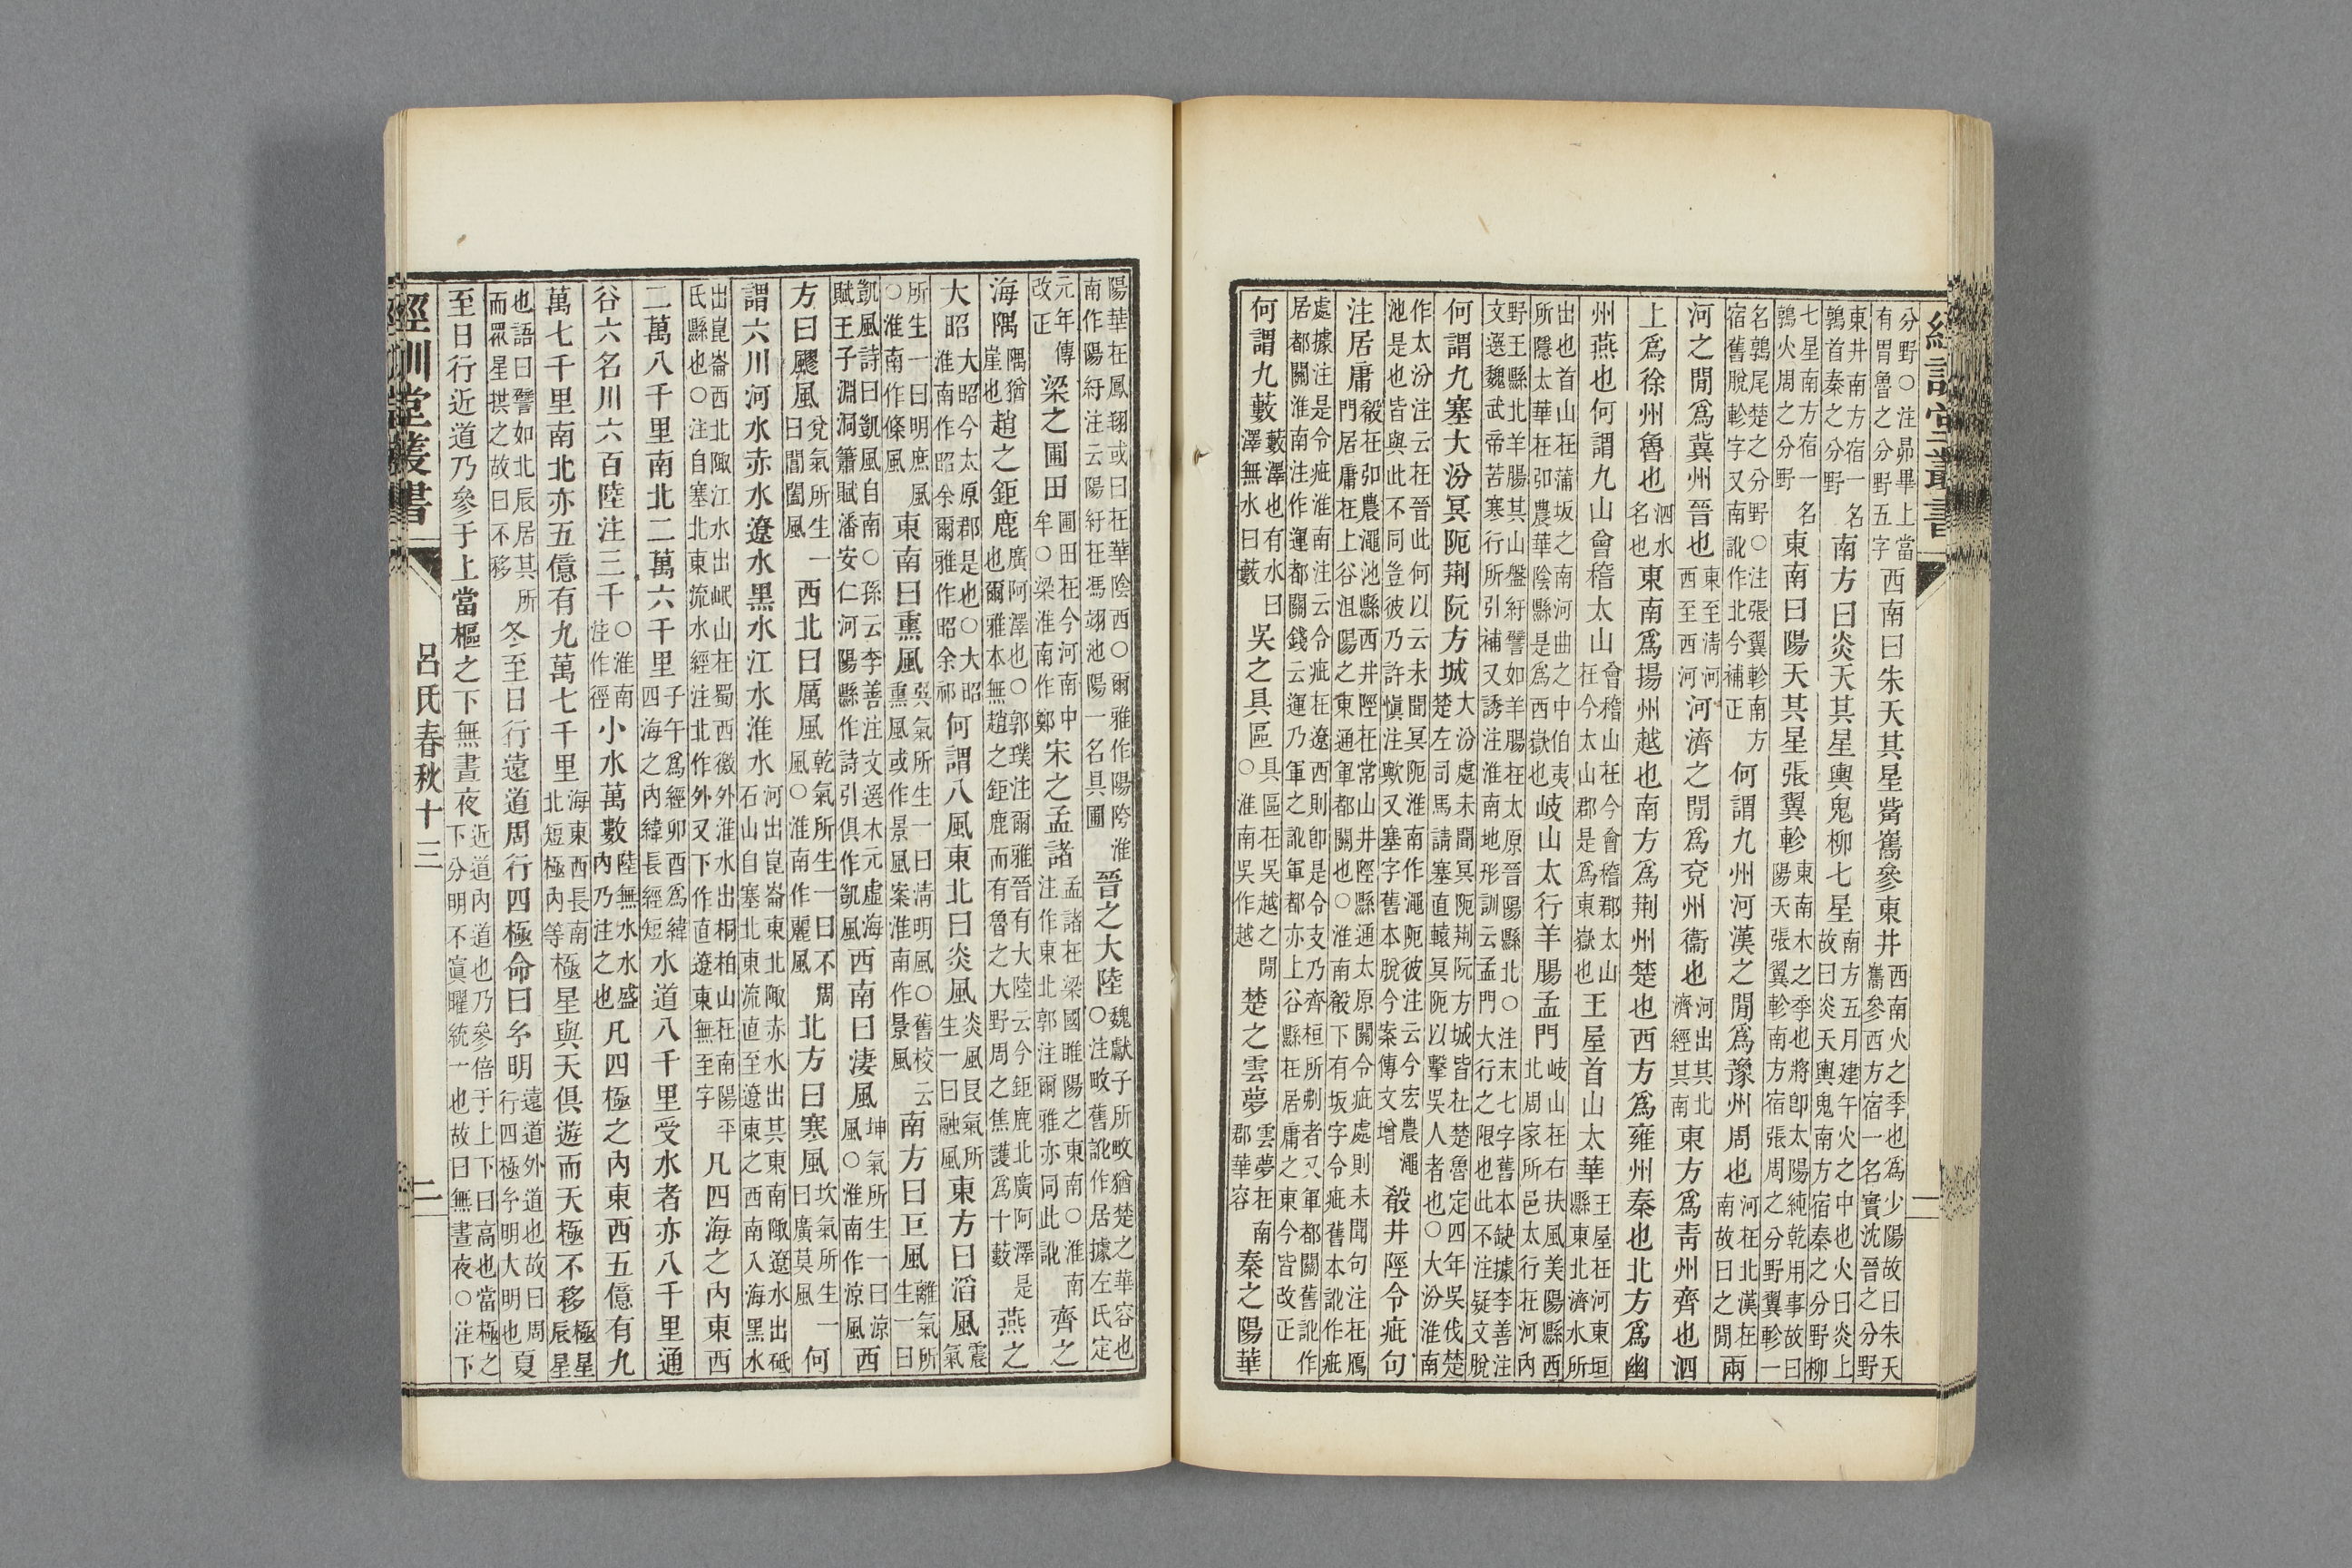 經訓堂叢書
分野○注昴畢上當
有胃魯之分野五字
西南曰朱天其星觜嶲參東井
西南火之季也爲少陽故曰朱天
嶲參西方宿一名實沈晉之分野
東井南方宿一名
鶉首秦之分野
南方曰炎天其星輿鬼柳七星
南方五月建午火之中也火曰炎上
故曰炎天輿鬼南方宿秦之分野柳
七星南方宿一名
鶉火周之分野
東南曰陽天其星張翼軫
東南木之季也將卽太陽純乾用事故曰
陽天張翼軫南方宿張周之分野翼軫一
名鶉尾楚之分野○注張翼軫南方
宿舊脫軫字又南訛作北今補正
何謂九州河漢之閒爲豫州周也
河在北漢在
南故曰之閒
兩
河之閒爲冀州晉也
東至淸河
西至西河
河濟之閒爲兗州衞也
河出其北
濟經其南
東方爲靑州齊也泗
上爲徐州魯也
泗水
名也
東南爲揚州越也南方爲荆州楚也西方爲雍州秦也北方爲幽
州燕也何謂九山會稽太山
會稽山在今會稽郡太山
在今太山郡是爲東嶽也
王屋首山太華
王屋在河東垣
縣東北濟水所
出也首山在蒲坂之南河曲之中伯夷
所隱太華在弘農華陰縣是爲西嶽也
岐山太行羊腸孟門
岐山在右扶風美陽縣西
北周家所邑太行在河內
野王縣北羊腸其山盤紆譬如羊腸在太原晉陽縣北○注末七字舊本缺據李善注
文選魏武帝苦寒行所引補又誘注淮南地形訓云孟門大行之限也此不注疑文脫
何謂九塞大汾冥阨荆阮方城
大汾處未聞冥阨荆阮方城皆在楚魯定四年吳伐楚
楚左司馬請塞直轅冥阨以擊吳人者也○大汾淮南
作太汾注云在晉此何以云未聞冥阨淮南作澠阨彼注云今宏農澠
池是也皆與此不同豈彼乃許愼注歟又塞字舊本脫今案傳文增
殽井陘令疵句
注居庸
殽在弘農澠池縣西井陘在常山井陘縣通太原關令疵處則未聞句注在鴈
門居庸在上谷沮陽之東通軍都關也○淮南殽下有坂字令疵舊本訛作疵
處據注是令疵淮南注云令疵在遼西則卽是令支乃齊桓所刜者又軍都關舊訛作
居都關淮南注作運都關錢云運乃軍之訛軍都亦上谷縣在居庸之東今皆改正
何謂九藪
藪澤也有水曰
澤無水曰藪
吳之具區
具區在吳越之閒
○淮南吳作越
楚之雲夢
雲夢在南
郡華容
秦之陽華
陽華在鳳翔或曰在華陰西○爾雅作陽陓淮
南作陽紆注云陽紆在馮翊池陽一名具圃
晉之大陸
魏獻子所畋猶楚之華容也
○注畋舊訛作居據左氏定
元年傳
改正
梁之圃田
圃田在今河南中
牟○梁淮南作鄭
宋之孟諸
孟諸在梁國睢陽之東南○淮南
注作東北郭注爾雅亦同此訛
齊之
海隅
隅猶
崖也
趙之鉅鹿
廣阿澤也○郭璞注爾雅晉有大陸云今鉅鹿北廣阿澤是
也爾雅本無趙之鉅鹿而有魯之大野周之焦護爲十藪
燕之
大昭
大昭今太原郡是也○大昭
淮南作昭余爾雅作昭余祁
何謂八風東北曰炎風
炎風艮氣所
生一曰融風
東方曰滔風
震
氣
所生一曰明庶風
○淮南作條風
東南曰熏風
巽氣所生一曰淸明風○舊校云
熏風或作景風案淮南作景風
南方曰巨風
離氣所
生一曰
凱風詩曰凱風自南○孫云李善注文選木元虛海
賦王子淵洞簫賦潘安仁河陽縣作詩引俱作凱風
西南曰淒風
坤氣所生一曰涼
風○淮南作涼風
西
方曰飂風
兌氣所生一
曰閶闔風
西北曰厲風
乾氣所生一曰不周
風○淮南作麗風
北方曰寒風
坎氣所生一
曰廣莫風
何
謂六川河水赤水遼水黑水江水淮水
河出崑崙東北陬赤水出其東南陬遼水出砥
石山自塞北東流直至遼東之西南入海黑水
出崑崙西北陬江水出岷山在蜀西徼外淮水出桐柏山在南陽平
氏縣也○注自塞北東流水經注北作外又下作直遼東無至字
凡四海之內東西
二萬八千里南北二萬六千里
子午爲經卯酉爲緯
四海之內緯長經短
水道八千里受水者亦八千里通
谷六名川六百陸注三千
○淮南
注作徑
小水萬數
陸無水水盛
內乃注之也
凡四極之內東西五億有九
萬七千里南北亦五億有九萬七千里
海東西長南
北短極內等
極星與天俱遊而天極不移
極星
辰星
也語曰譬如北辰居其所
而眾星拱之故曰不移
冬至日行遠道周行四極命曰玄明
遠道外道也故曰周
行四極玄明大明也
夏
至日行近道乃參于上當樞之下無晝夜
近道內道也乃參倍于上下曰高也當極之
下分明不眞曜統一也故曰無晝夜○注下
經訓堂叢書
呂氏春秋十三
二